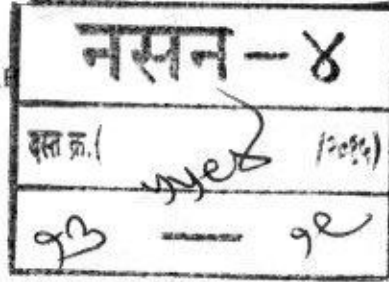 नसन - ४
दस्त क्र. ( ५५९४ /२०१५)
१३ — १९